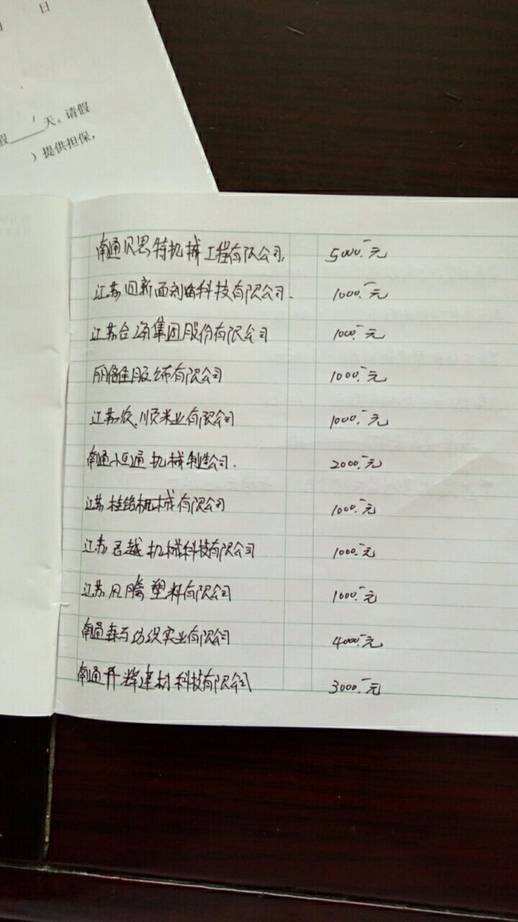 日
天。请假
）提供担保，
南通贝思特机械工程有限公司. 5000.-元
江苏回新面剂料科技有限公司. 1000.-元
江苏台海集团股份有限公司 1000.-元
服饰有限公司 1000.-元
江苏 顺米业有限公司 1000.-元
南通恒通机械制造公司. 2000.-元
江苏桂铭机械有限公司 1000.-元
江苏君越机械科技有限公司 1000.-元
江苏凡腾塑料有限公司 1000.-元
南通 纺织实业有限公司 4000.-元
南通开辉建材科技有限公司 3000.-元